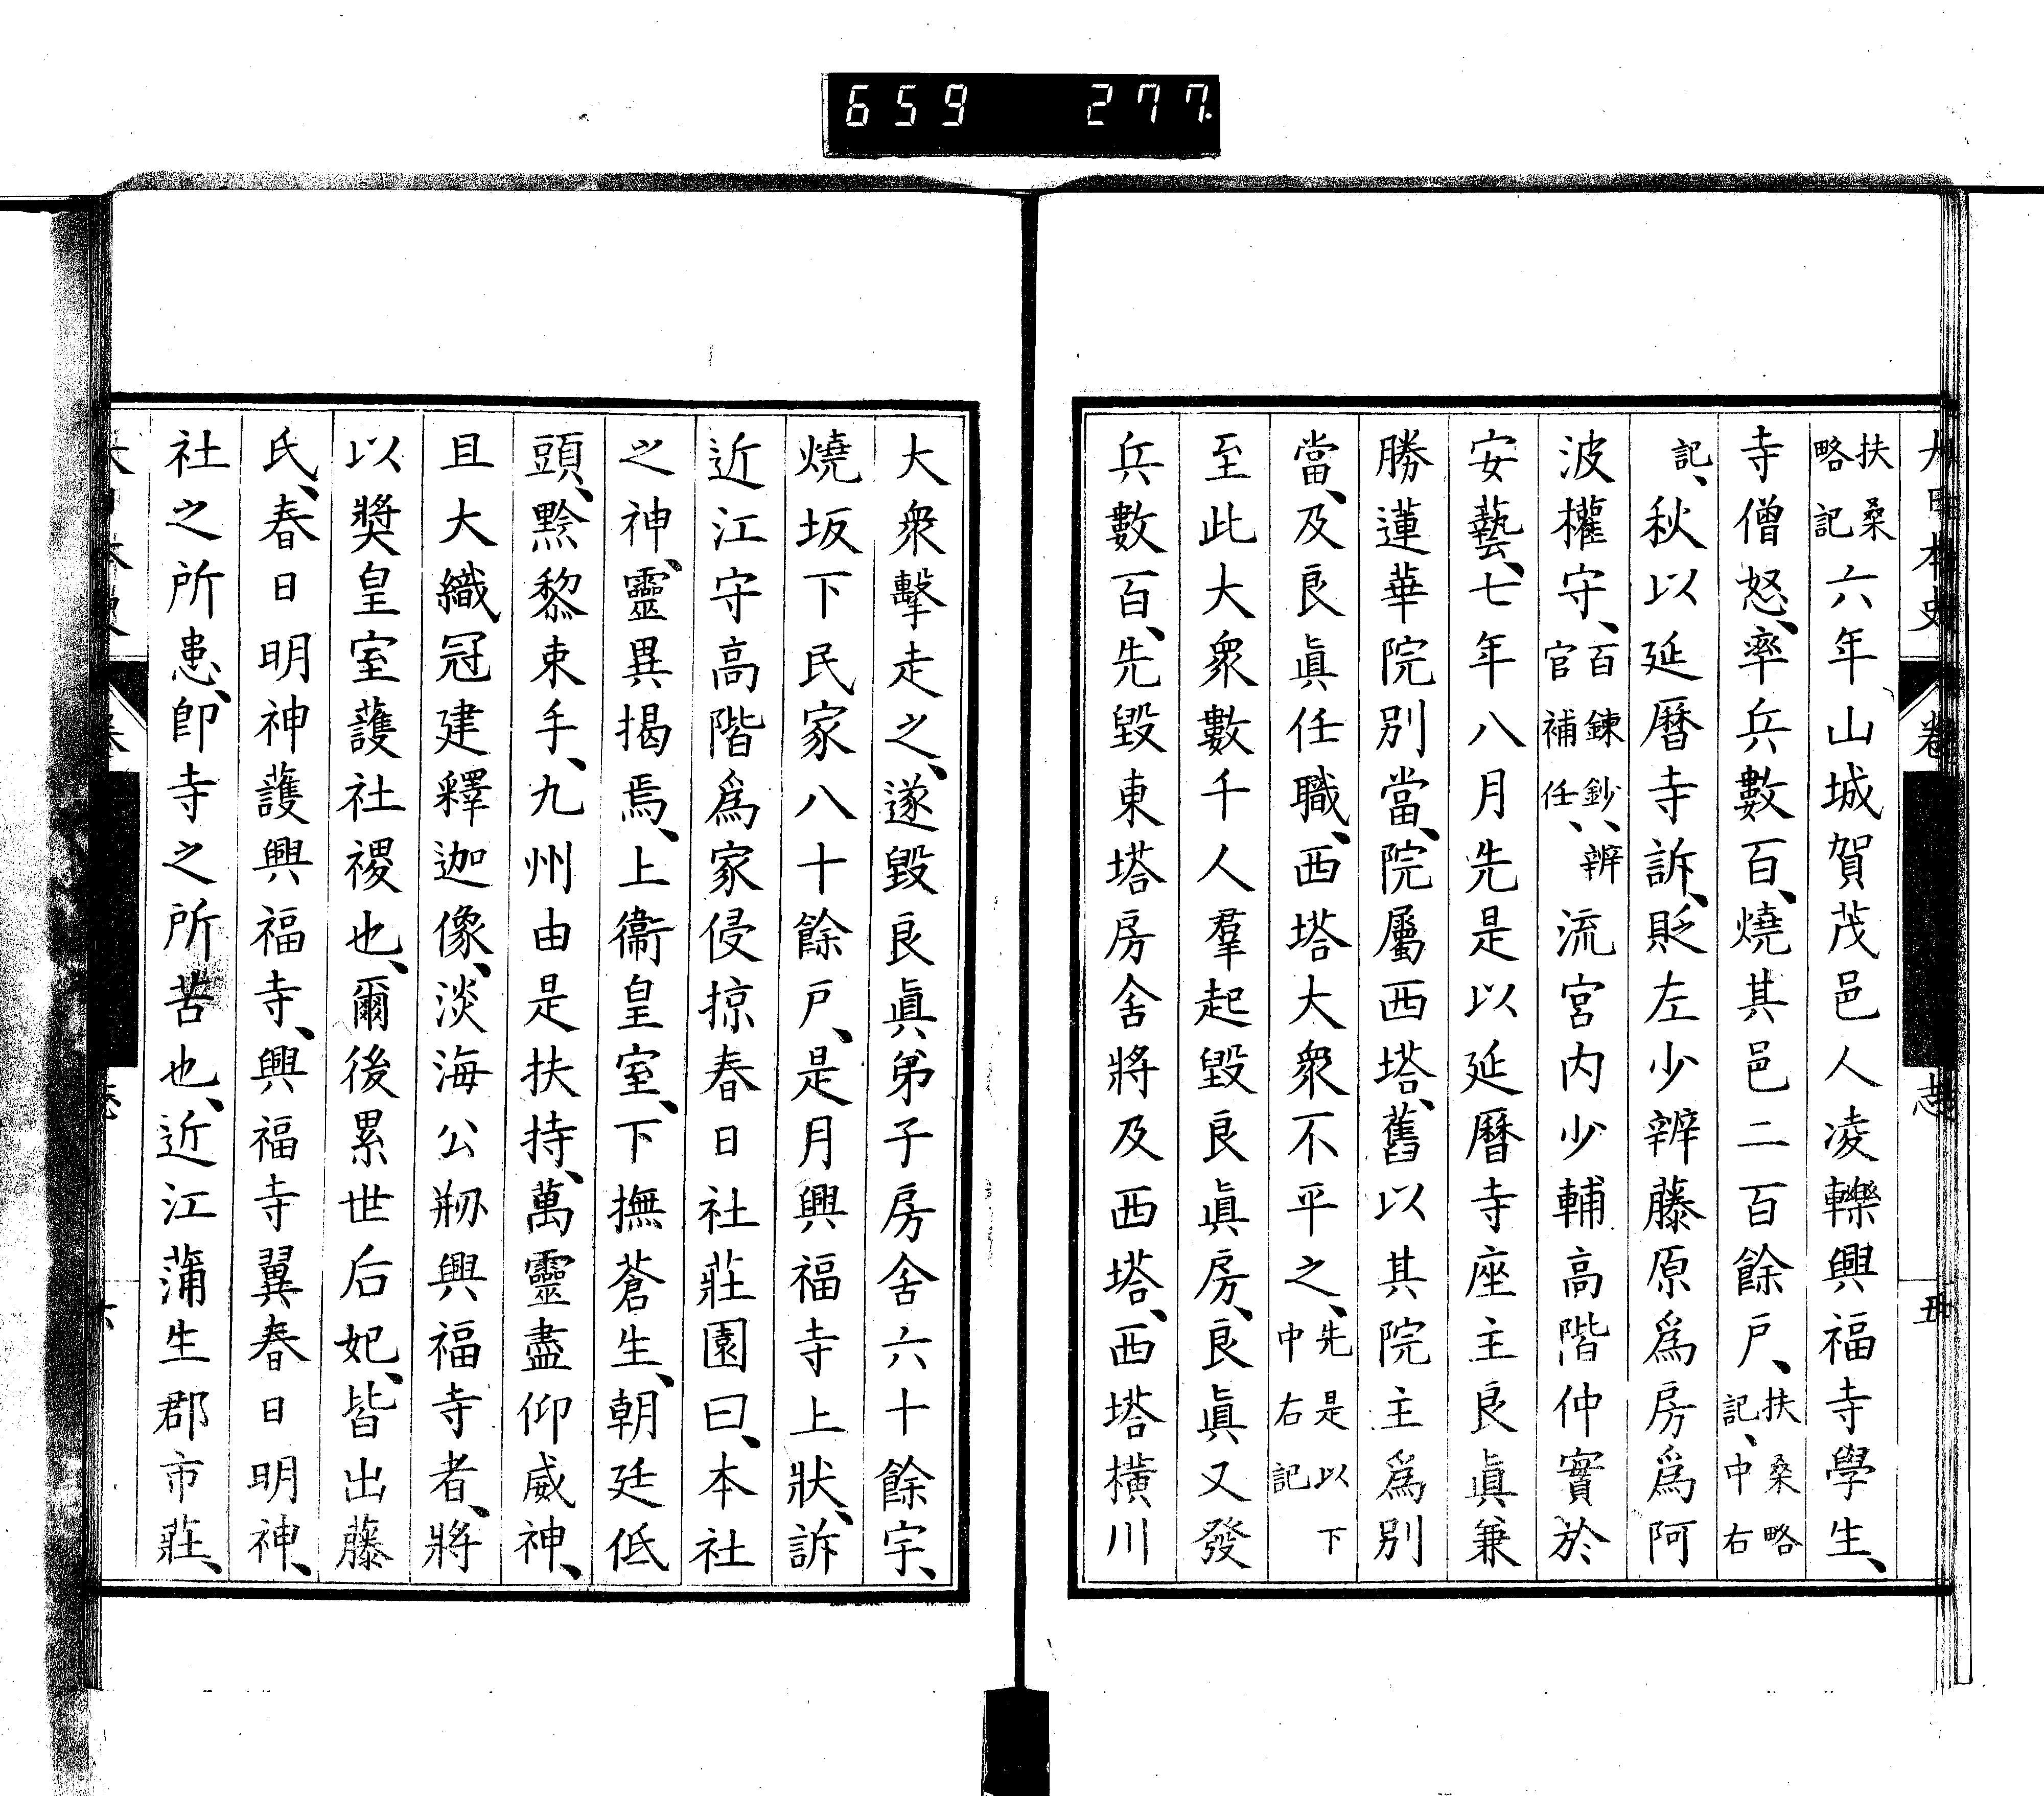 659 277.
大日本史 卷 志 五
扶桑略記六年山城賀茂邑人凌轢興福寺學生、
寺僧怒、率兵數百、燒其邑二百餘戶、扶桑略記、中右
記、秋以延曆寺訴、貶左少辨藤原爲房爲阿
波權守、百鍊鈔、辨官補任、流宮内少輔高階仲實於
安藝、七年八月先是以延曆寺座主良眞兼
勝蓮華院別當、院屬西塔、舊以其院主爲別
當、及良眞任職、西塔大衆不平之、先是以下中右記
至此大衆數千人羣起毀良眞房、良眞又發
兵數百、先毀東塔房舍將及西塔、西塔橫川
大衆擊走之、遂毀良眞弟子房舍六十餘宇、
燒坂下民家八十餘戶、是月興福寺上狀、訴
近江守高階爲家侵掠春日社莊園曰、本社
之神、靈異揭焉、上衞皇室、下撫蒼生、朝廷低
頭、黔黎束手、九州由是扶持、萬靈盡仰威神、
且大織冠建釋迦像、淡海公剏興福寺者、將
以獎皇室護社稷也、爾後累世后妃、皆出藤
氏、春日明神護興福寺、興福寺翼春日明神、
社之所恚、卽寺之所苦也、近江蒲生郡市莊、